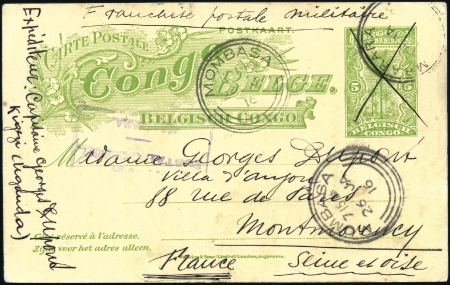 Franchise postale militaire
POSTKAART.
CARTE POSTALE
Congo
BELGE.
BELGISCH CONGO
5
5
BELGISCH
CONGO
MOMBASA
16
Madame Georges Dupont
Villa d'Anjou
88 rue de Paris
Montmorency
France
Seine et Oise
MOMBASA
26
16
Côté réservé à l'adresse.
Zijde voor het adres alleen.
Expéditeur: Capitaine Georges Dupont
Kigezi (Uganda)